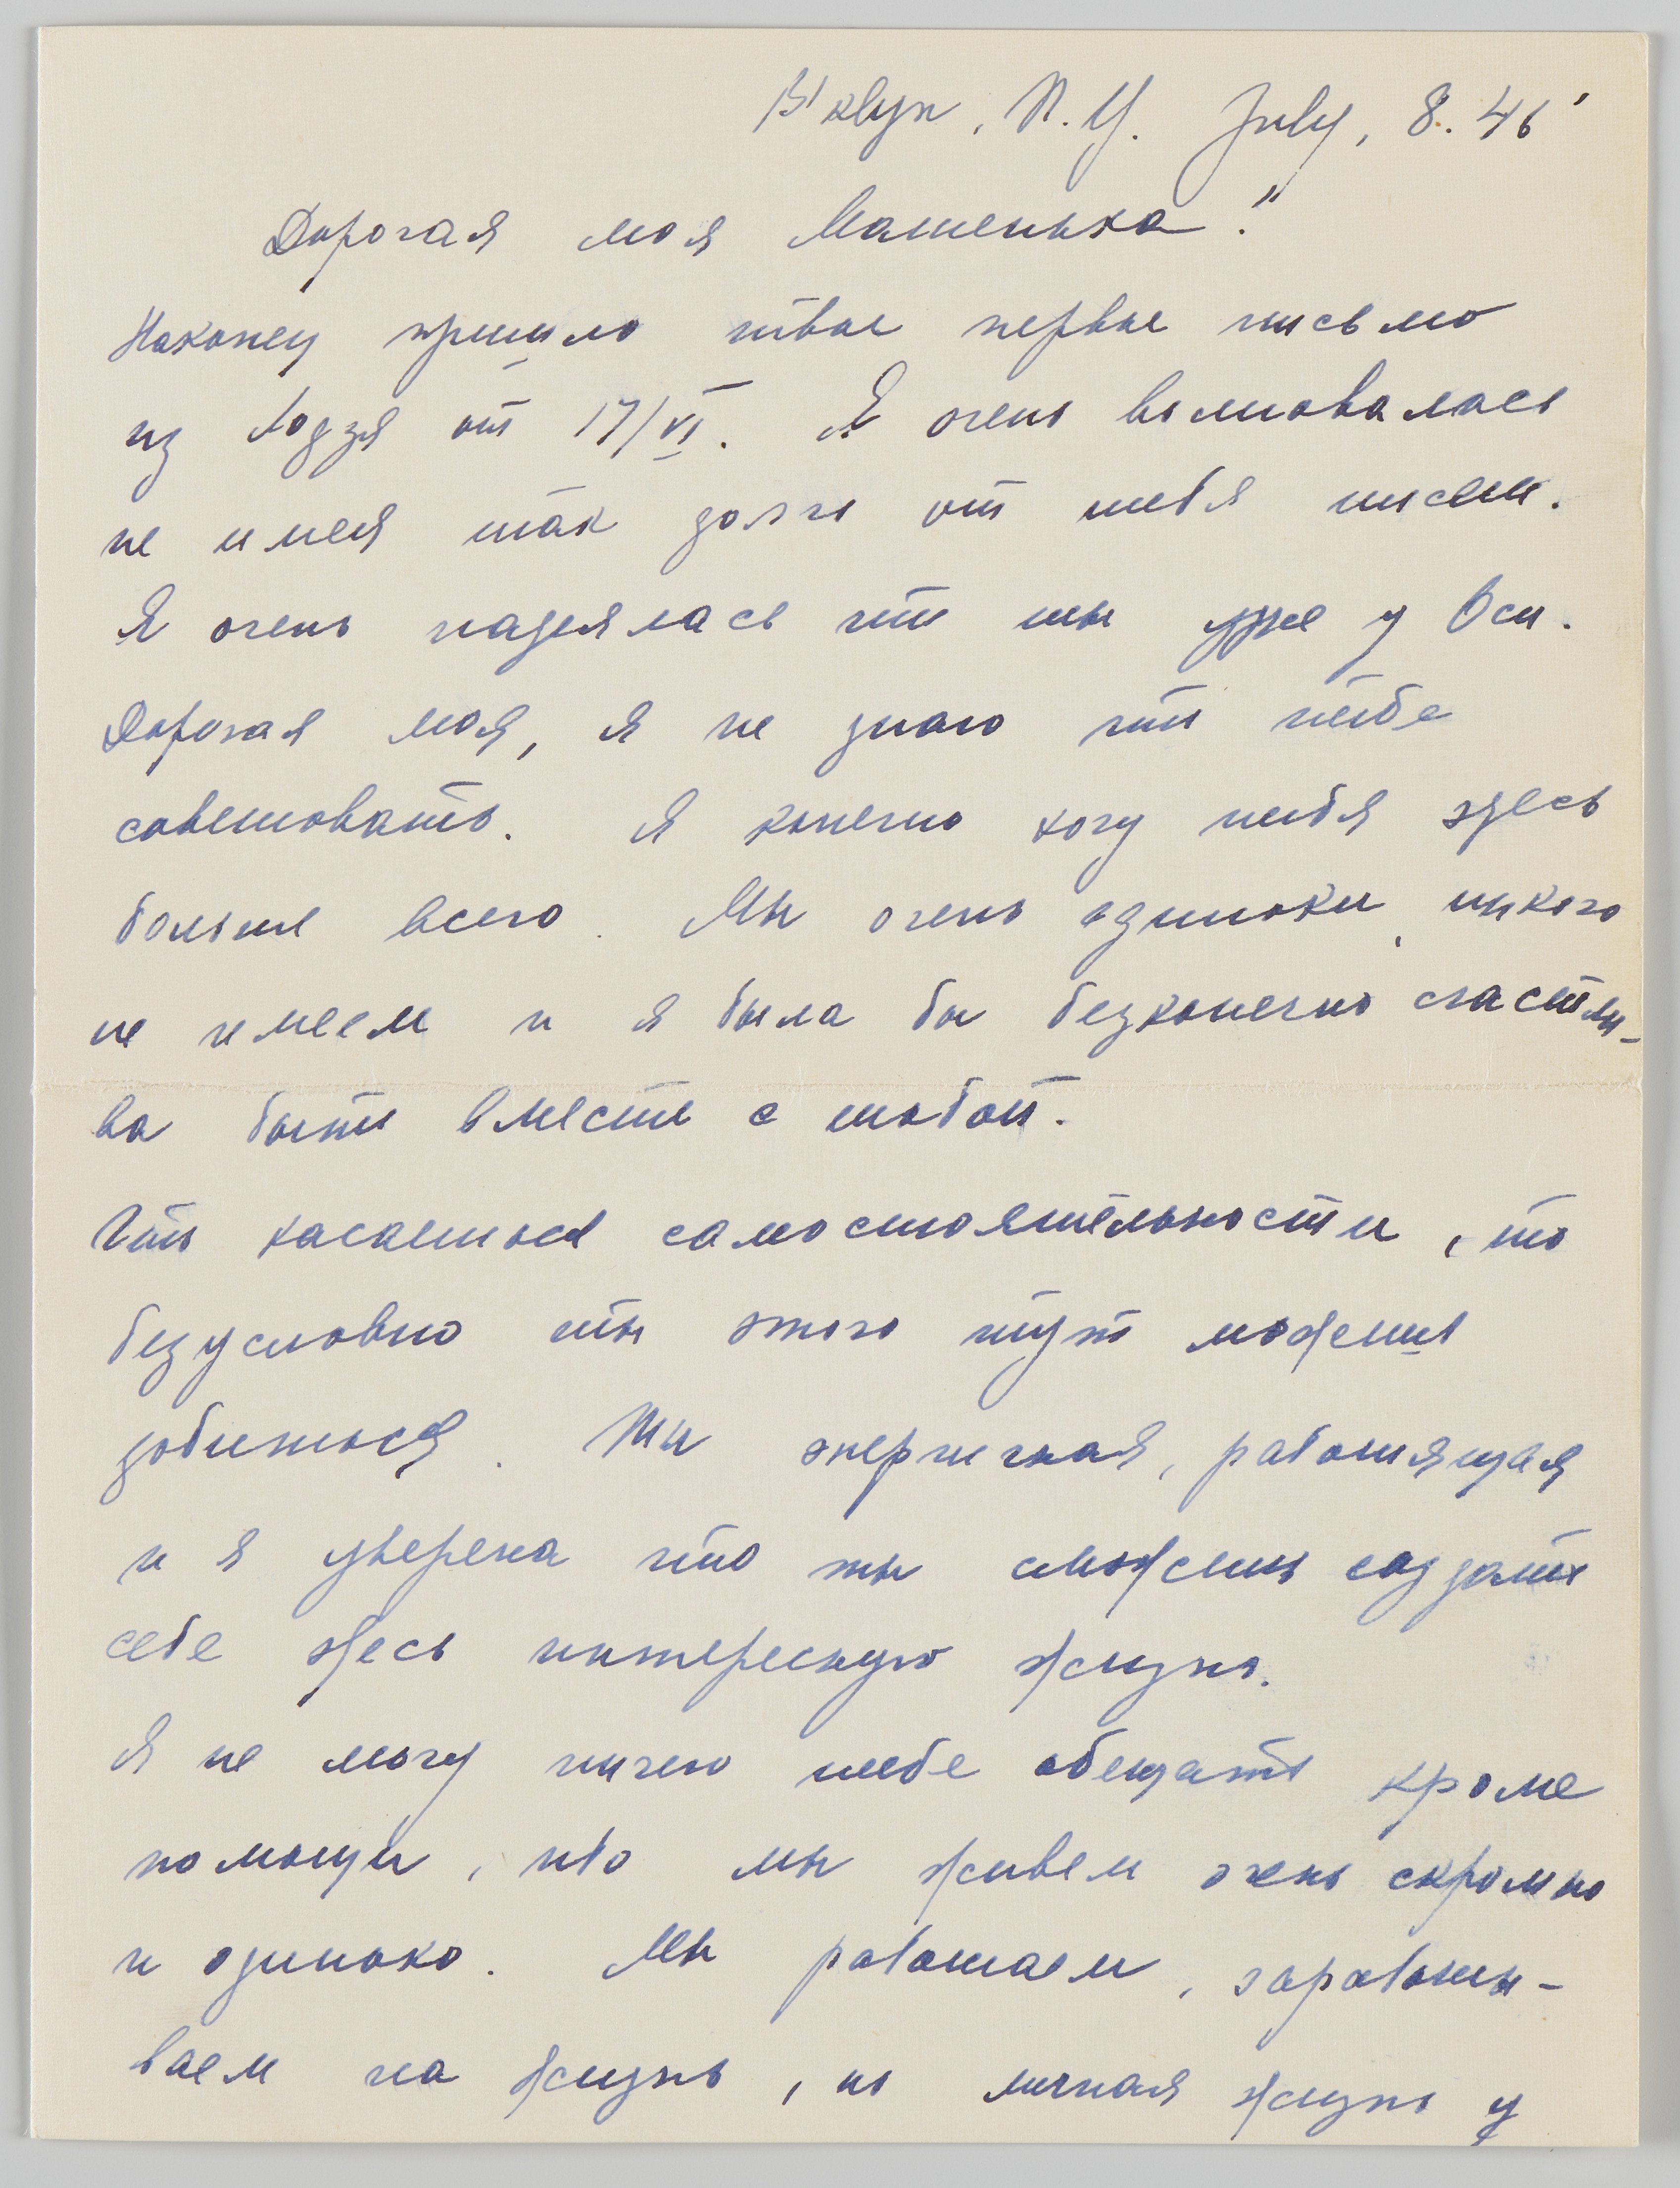 B'klyn, N.Y. July, 8. 46'
Дорогая моя Машенька!"
Наконец пришло твое первое письмо
из Лодзя от 17/VI. Я очень волновалась
не имея так долго от тебя писем.
Я очень надеялась что ты уже у Оси.
Дорогая моя, я не знаю что тебе
советовать. Я конечно хочу тебя здесь
больше всего. Мы очень одиноки, никого
не имеем и я была бы безконечно счастли-
ва быть вместе с тобой.
Что касается самостоятельности, то
безусловно ты этого тут можешь
добиться. Ты энергичная, работящая
и я уверена что ты сможешь создать
себе здесь интересную жизнь.
Я не могу ничего тебе обещать кроме
помощи, ибо мы живем очень скромно
и одиноко. Мы работаем, зарабаты-
ваем на жизнь, но личная жизнь у